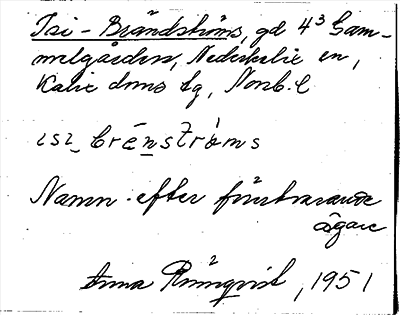 Isi-Brändströms, gd 4³ Gam-
melgården, Nederkalix sn,
Kalix dms tg, Nonb. l
ısı_brén̲strö̀ms
Namn efter förutvarande
ägare
Anna Rönnqvist, 1951